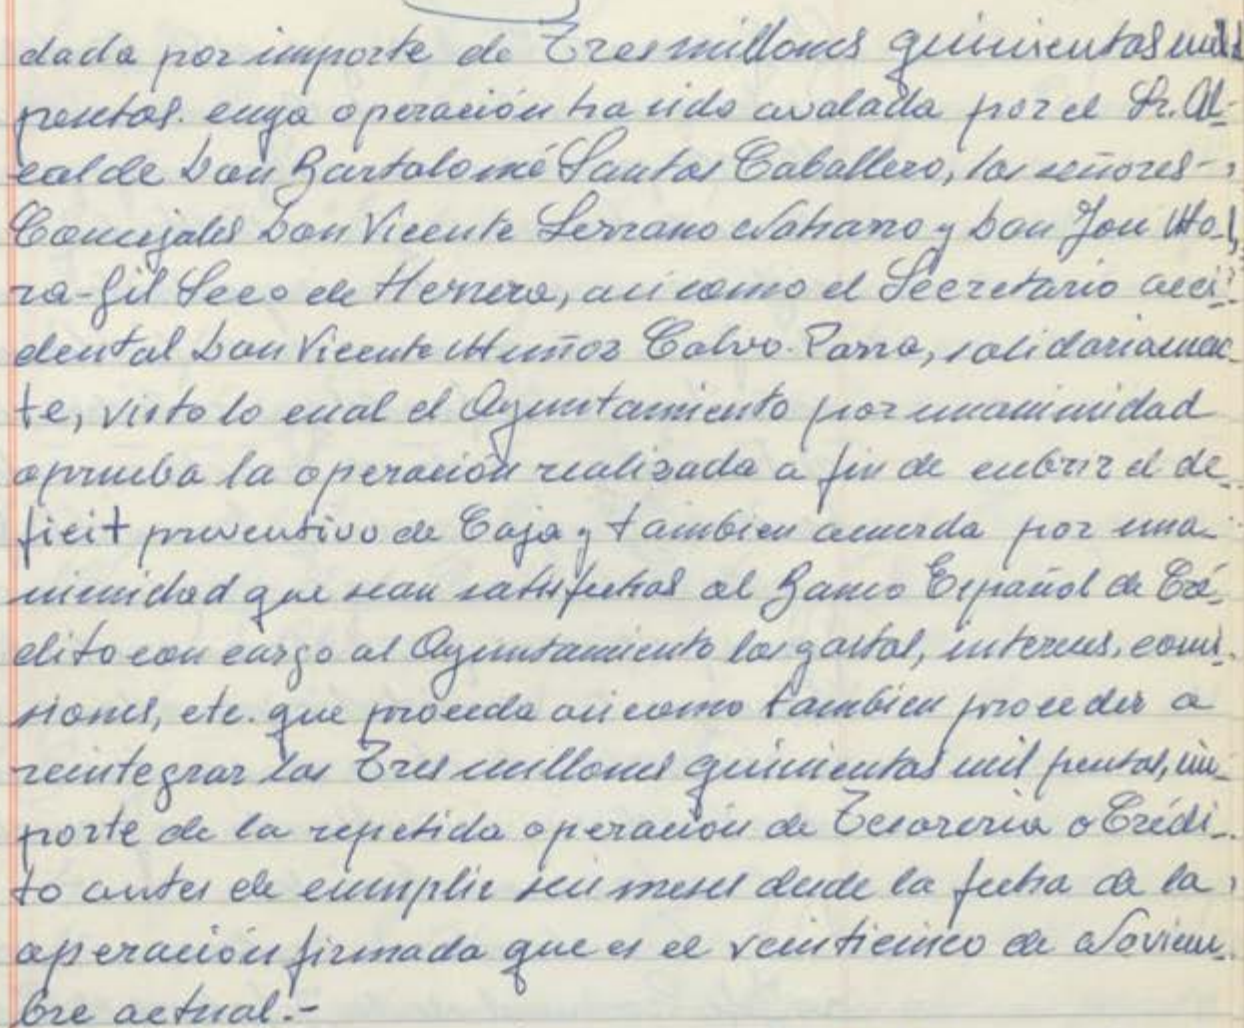 dada por importe de Tres millones quinientas mil
pesetas. cuya operación ha sido avalada por el Sr. Al-
calde Don Bartolomé Santos Caballero, los señores-
Concejales Don Vicente Serrano Naharro y Don José Mo-
ra-Gil Seco de Herrera, asi como el Secretario acci-
dental Don Vicente Muñoz Calvo-Parra, solidariamen-
te, visto lo cual el Ayuntamiento por unanimidad
aprueba la operación realizada a fin de cubrir el de-
ficit preventivo de Caja y tambien acuerda por una-
nimidad que sean satisfechos al Banco Español de Cré-
dito con cargo al Ayuntamiento los gastos, intereses, comi-
siones, etc. que proceda asi como tambien proceder a
reintegrar las Tres millones quinientas mil pesetas, im-
porte de la repetida operación de Tesoreria o Crédi-
to antes de cumplir seis meses desde la fecha de la
operación firmada que es el veinticinco de Noviem-
bre actual.-